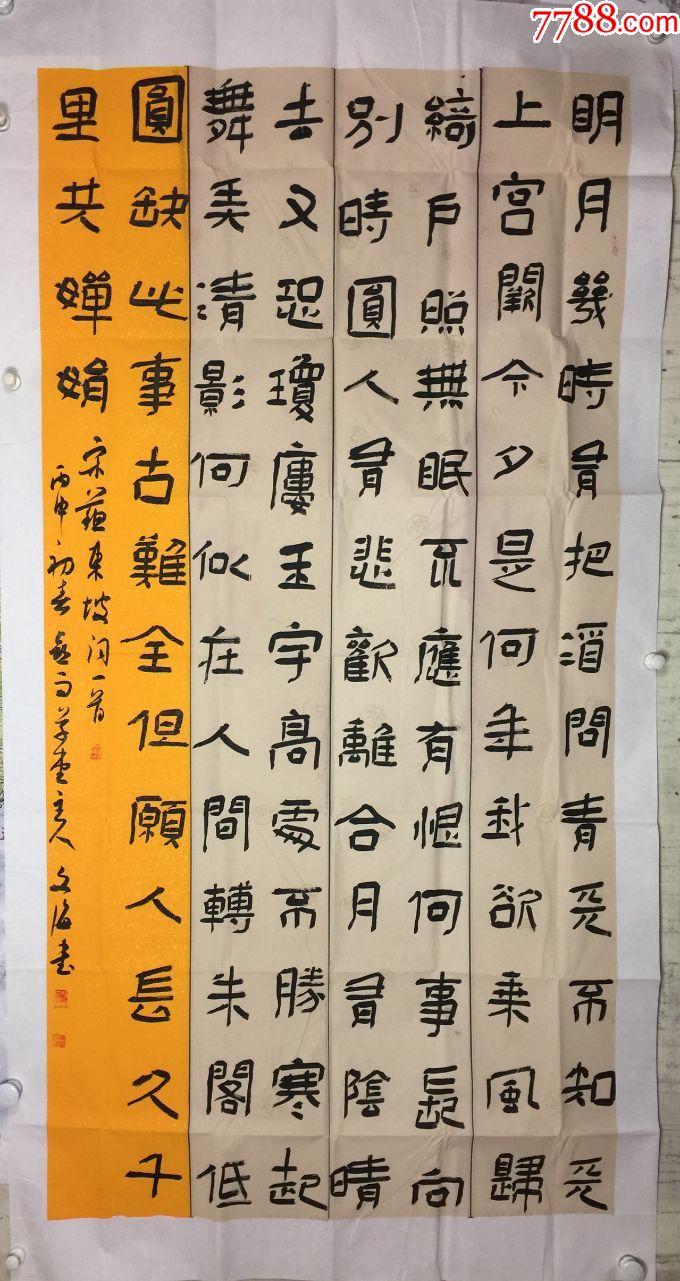 7788.com
眀月幾時有把酒問青天不知天
上宮闕今夕是何年我欲乘風歸
綺戶照無眠不應有恨何事長向
別時圓人有悲歡離合月有陰晴
去又恐瓊廔玉宇高處不勝寒起
舞弄清影何似在人間轉朱閣低
圓缺此事古難全但願人長久千
里共嬋娟
宋蘇東坡词一首
丙申初春草堂主人文海書